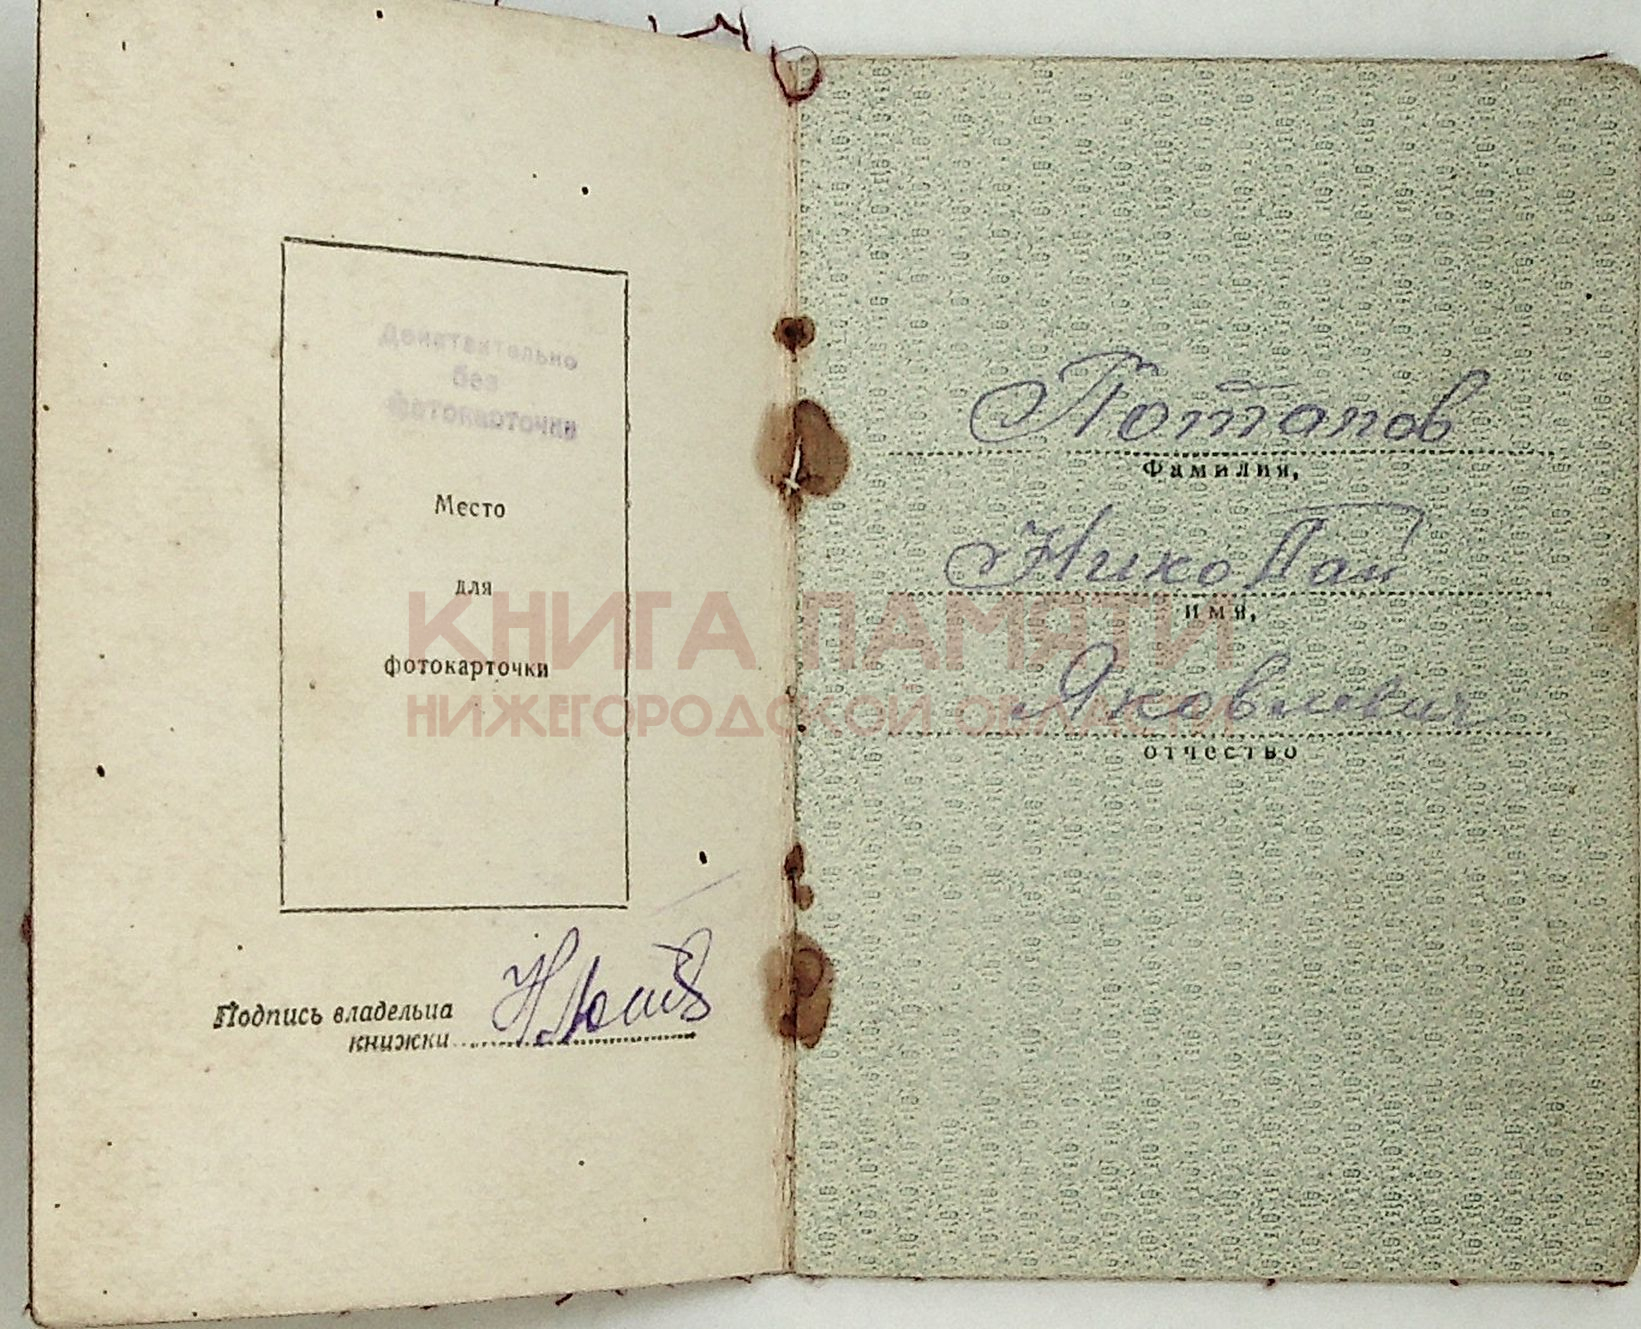 Действительно
без
фотокарточки
Место
для
фотокарточки
Подпись владельца
книжки
Потапов
Фамилия,
Николай
имя,
Яковлевич
отчество
КНИГА ПАМЯТИ
НИЖЕГОРОДСКОЙ ОБЛАСТИ